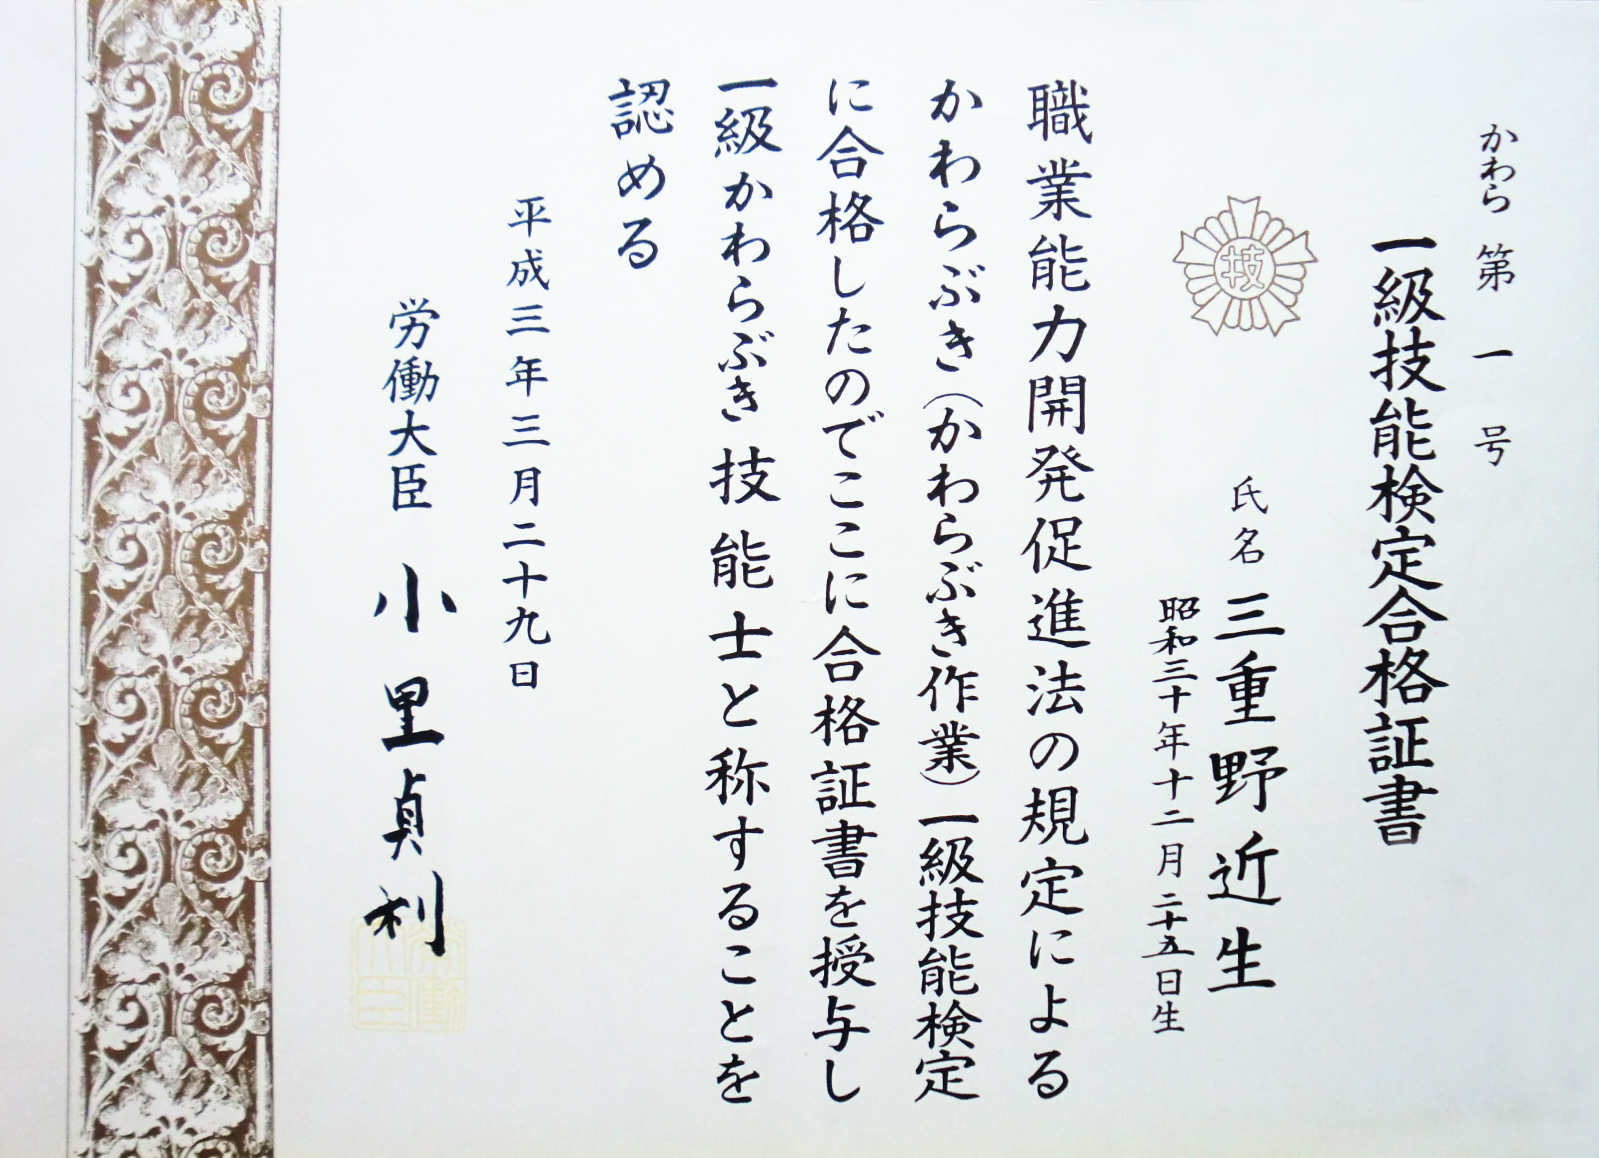 かわら第一号
一級技能検定合格証書
技
氏名 三重野近生
昭和三十年十二月二十五日生
職業能力開発促進法の規定による
かわらぶき（かわらぶき作業）一級技能検定
に合格したのでここに合格証書を授与し
一級かわらぶき技能士と称することを
認める
平成三年三月二十九日
労働大臣 小里貞利
労働
大臣